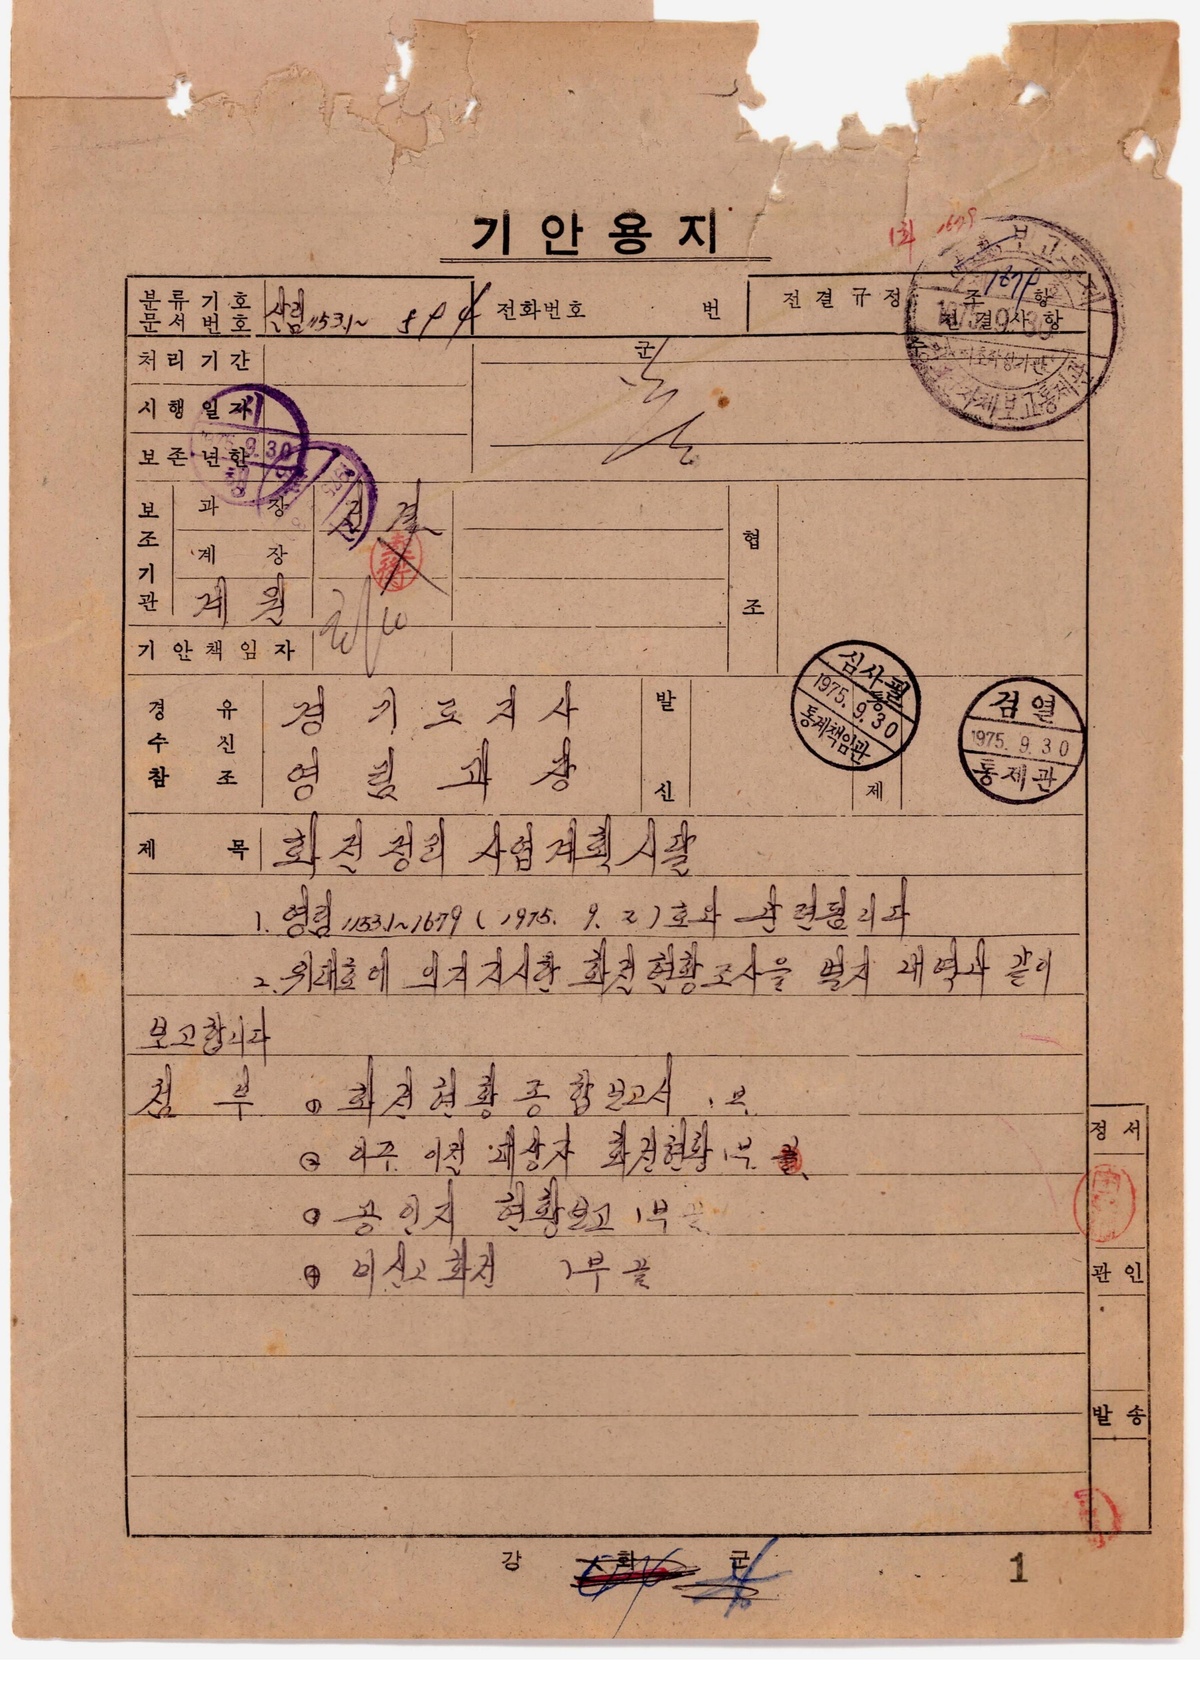 기안용지
분류기호
문서번호
산림1153.1~
전화번호 번
전결규정 조 항
전결사항
처리기간
군
시행일자
보존년한
1975. 9. 30
보조기관
과 장
전결
계 장
계 원
협조
기안책임자
심사필
1975. 9. 30
통제책임관
검열
1975. 9. 30
통제관
경유
수신
참조
경기도지사
영림과장
발신
제
제 목 화전정리 사업계획시달
1. 영림1153.1~1679 (1975. 9. 2)호와 관련됩니다
2. 위대호에 의거지시한 화전현황조사을 별지 내역과 같이
보고합니다
첨 부 ① 화전현황종합보고서 1부.
② 이주 이전 대상자 화전현황 1부.
③ 공인지 현황보고 1부 끝
④ 미신고화전 1부 끝
정서
관인
발송
강 화 군
1